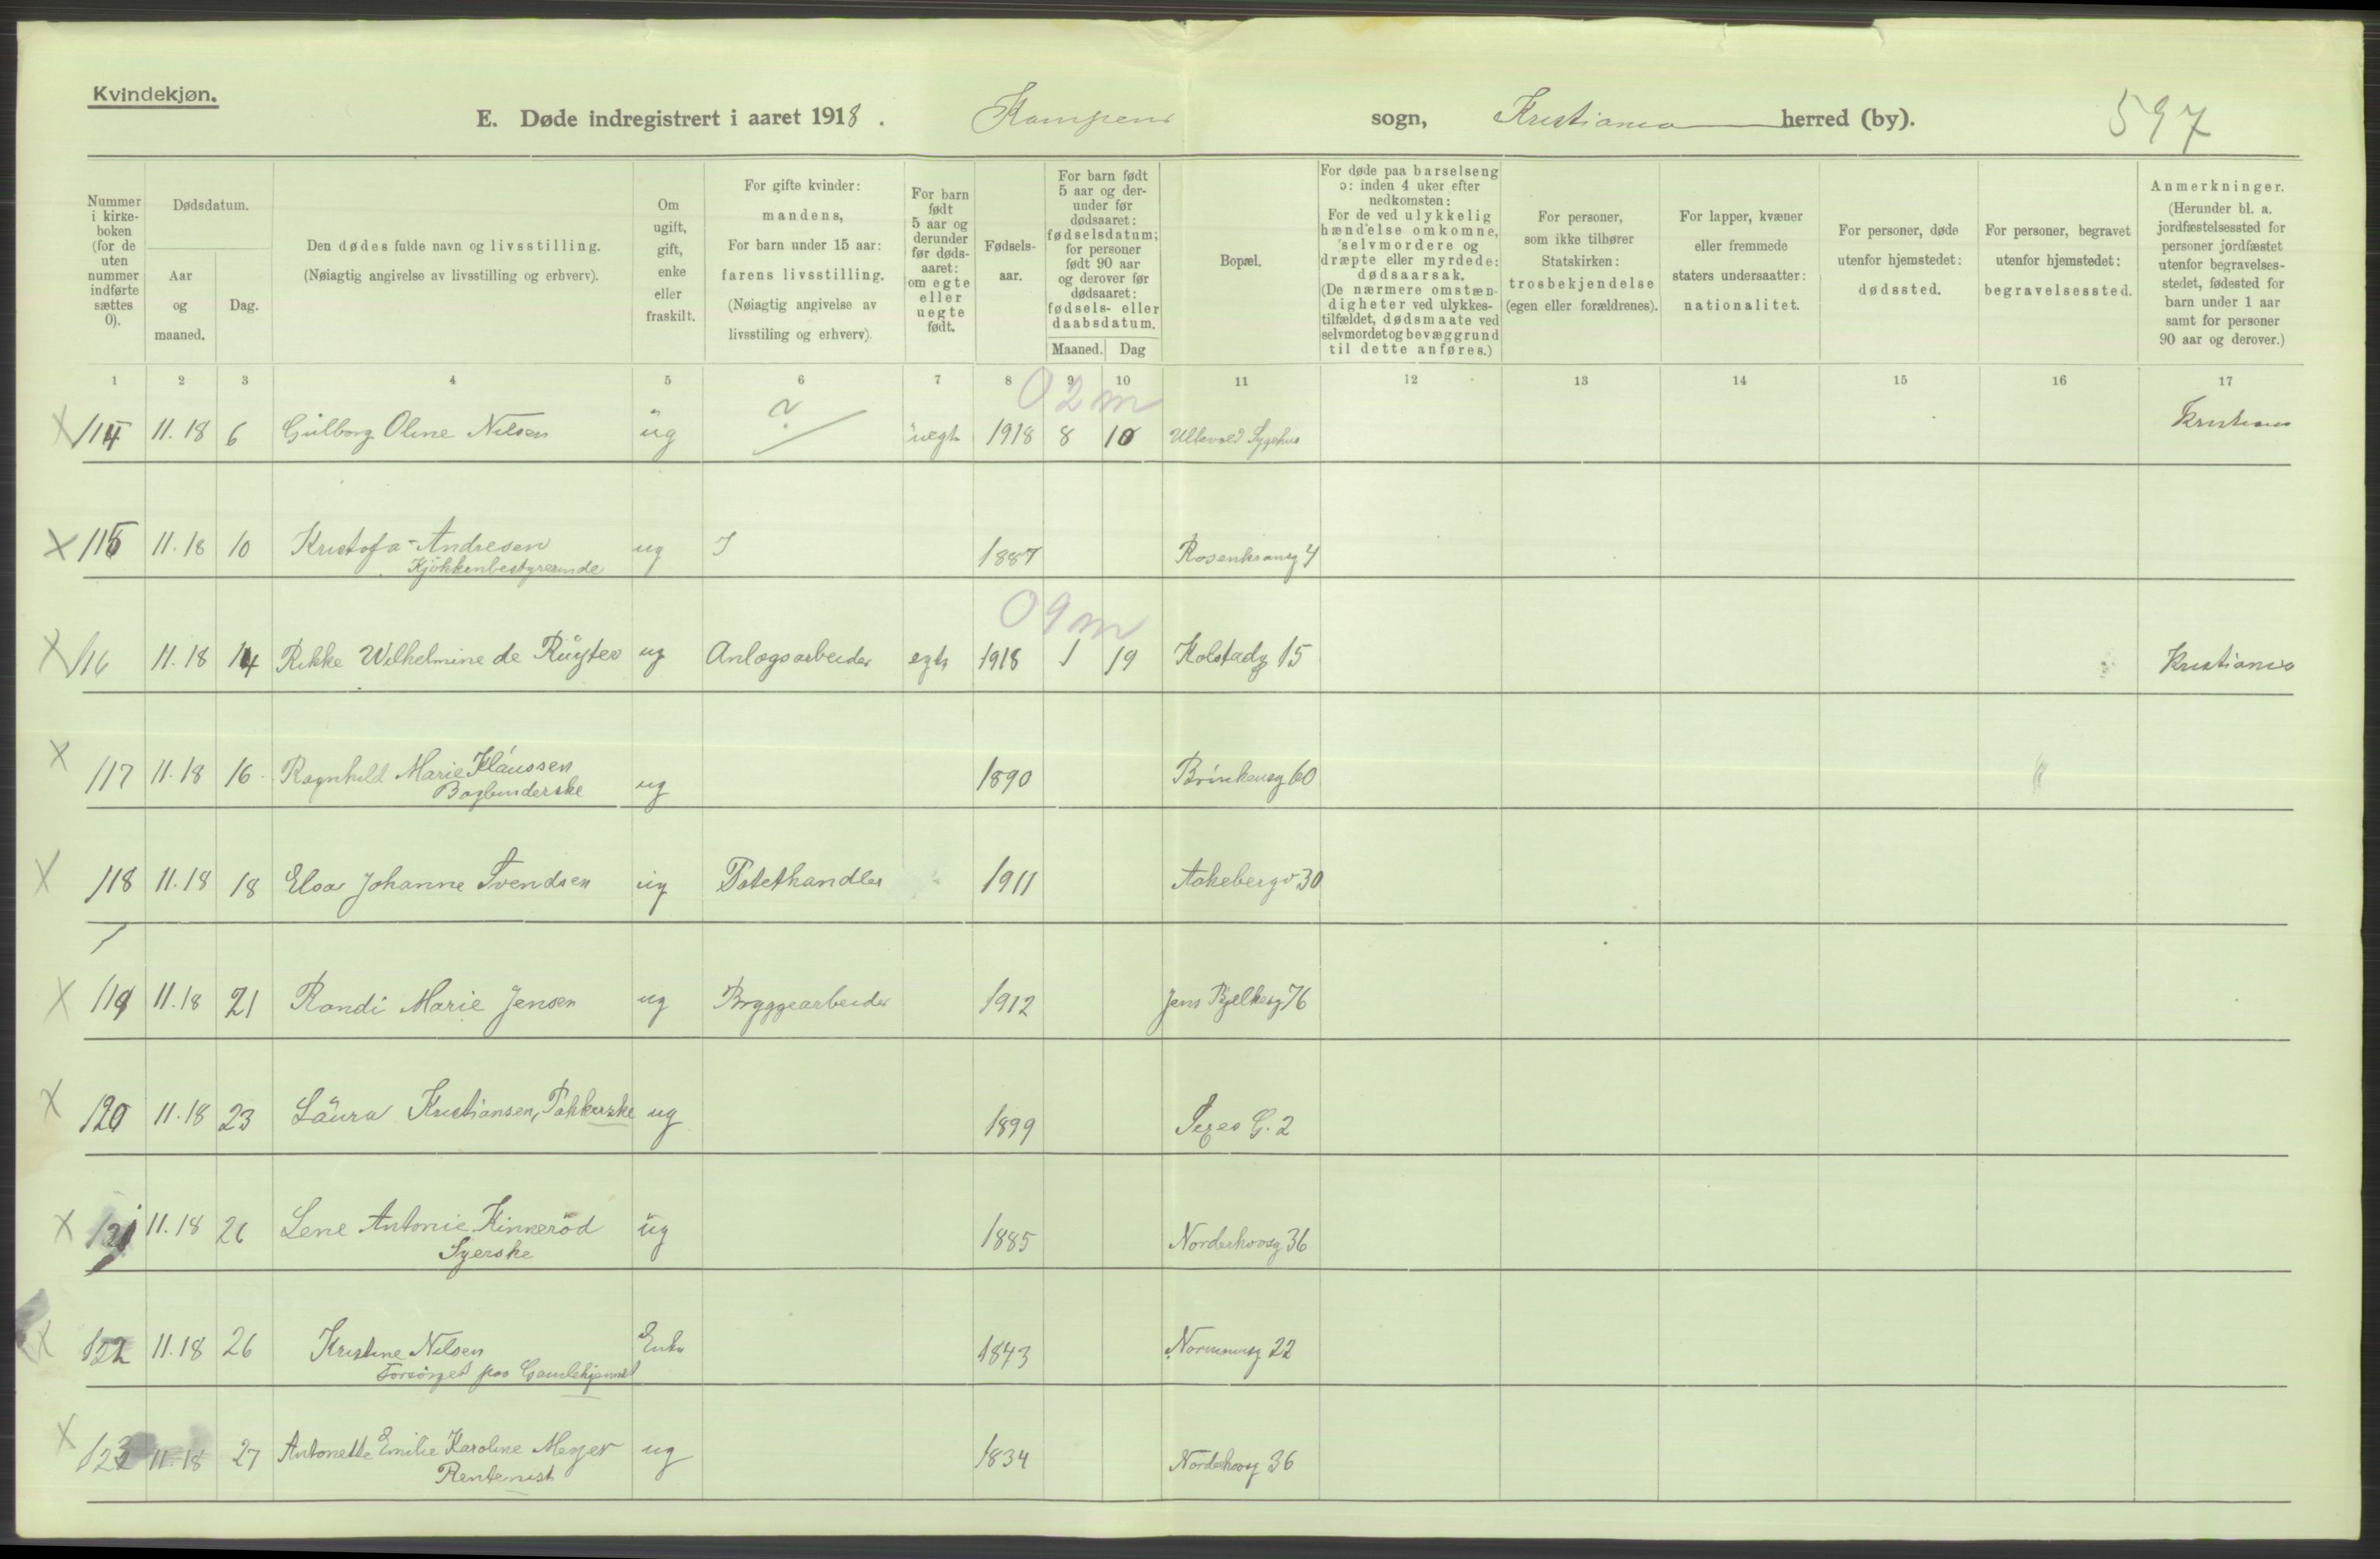 Kvindekjøn.
E. Døde indregistrert i aaret 1918. Kampens sogn, Kristiania herred (by). 597
Nummer i kirke- boken (for de uten nummer indførte sættes 0).
Dødsdatum.
Aar og maaned.
Dag.
Den dødes fulde navn og livsstilling.
(Nøiagtig angivelse av livsstilling og erhverv).
Om ugift, gift, enke eller fraskilt.
For gifte kvinder: mandens,
For barn under 15 aar: farens livsstilling.
(Nøiagtig angivelse av livsstiling og erhverv).
For barn født 5 aar og derunder før døds- aaret: om egte eller uegte født.
Fødsels- aar.
For barn født 5 aar og der- under før dødsaaret: fødselsdatum; for personer født 90 aar og derover før dødsaaret: fødsels- eller daabsdatum.
Maaned. Dag
Bopæl.
For døde paa barselseng ɔ: inden 4 uker efter nedkomsten:
For de ved ulykkelig hændelse omkomne, selvmordere og dræpte eller myrdede: dødsaarsak.
(De nærmere omstæn- digheter ved ulykkes- tilfældet, dødsmaate ved selvmordet og bevæggrund til dette anføres.)
For personer, som ikke tilhører Statskirken: trosbekjendelse (egen eller forældrenes).
For lapper, kvæner eller fremmede staters undersaatter: nationalitet.
For personer, døde utenfor hjemstedet: dødssted.
For personer, begravet utenfor hjemstedet: begravelsessted.
Anmerkninger.
(Herunder bl. a. jordfæstelsessted for personer jordfæstet utenfor begravelses- stedet, fødested for barn under 1 aar samt for personer 90 aar og derover.)
1 2 3 4 5 6 7 8 9 10 11 12 13 14 15 16 17
02m
X 114 11.18 6 Gulborg Oline Nilsen ug ? uegte 1918 8 10 Ullevold Sygehus Kristiania
X 115 11.18 10 Kristofa Andresen ug 1887 Rosenkransg 4
Kjøkkenbestyrerinde
09m
X 116 11.18 14 Rikke Wilhelmine de Ruyter ug Anlægsarbeider egte 1918 1 19 Kolstadg 15 Kristiania
X 117 11.18 16 Ragnhild Marie Klaussen ug 1890 Brinkensg 60
Bogbinderske
X 118 11.18 18 Elsa Johanne Svendsen ug Potethandler 1911 Aakebergv 30
X 119 11.18 21 Randi Marie Jensen ug Bryggearbeider 1912 Jens Bjelkesg 76
X 120 11.18 23 Laura Kristiansen, Pakkerske ug 1899 G. 2
X 121 11.18 26 Lene Antonie Kinnerød ug 1885 Norderhovsg 36
Syerske
X 122 11.18 26 Kristine Nilsen Enke 1843 Normannsg 22
Forsørget paa Gamlehjemmet
X 123 11.18 27 Antonette Emilie Karoline Meyer ug 1834 Norderhovsg 36
Rentenist